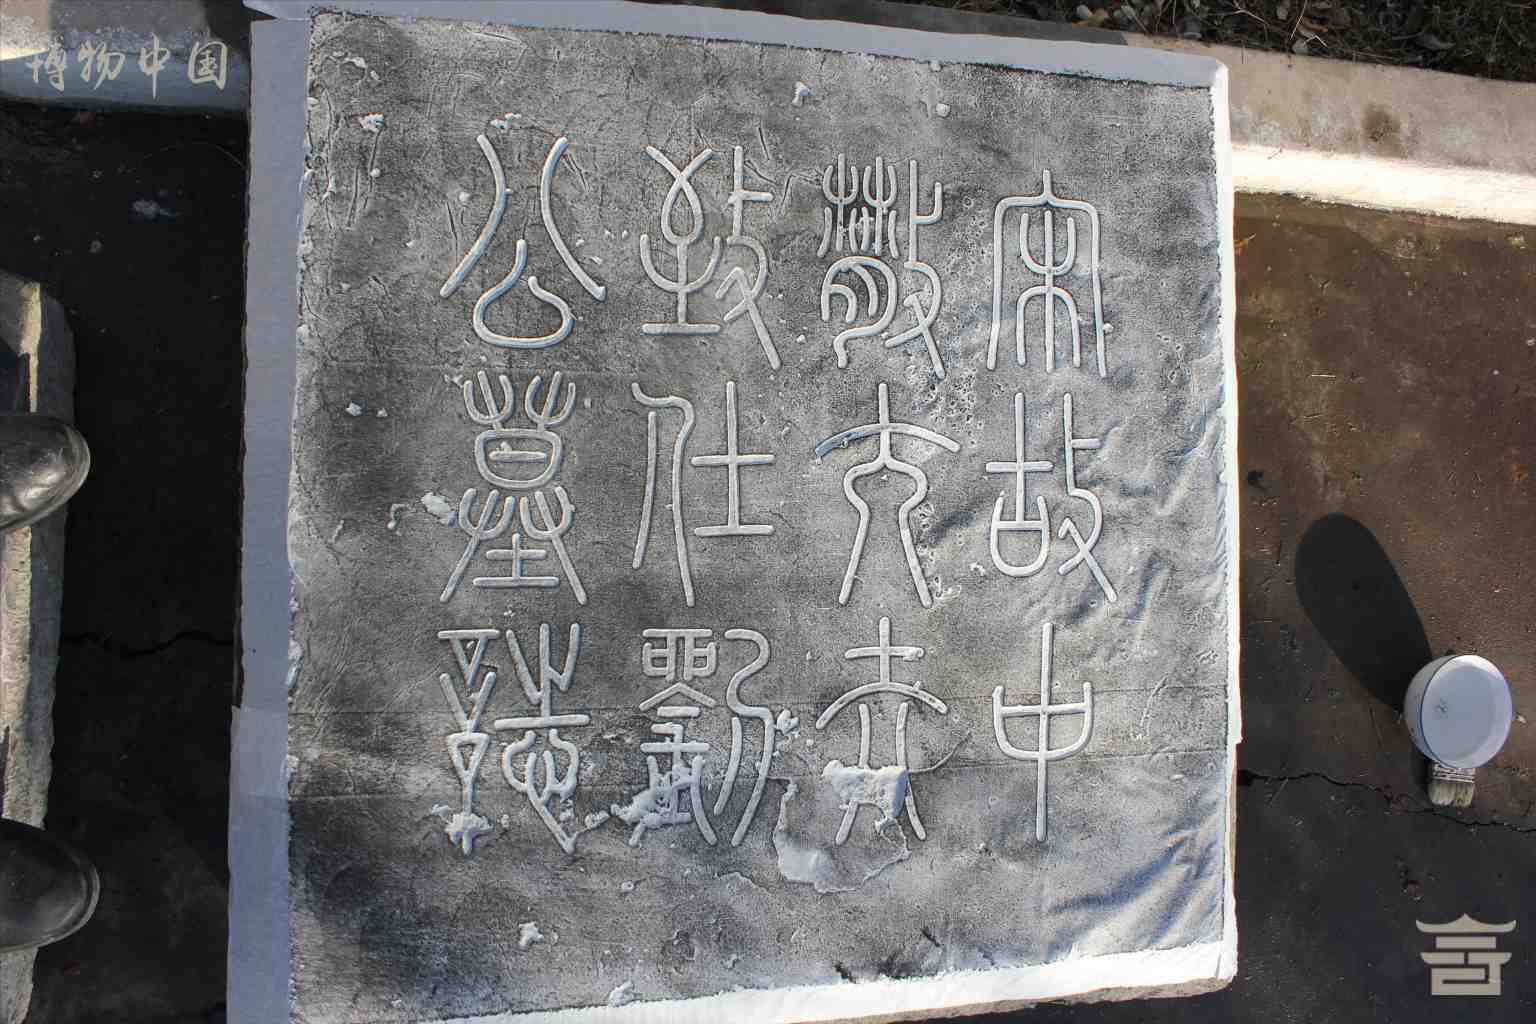 博物中国
宋故中
散大夫
致仕劉
公墓誌